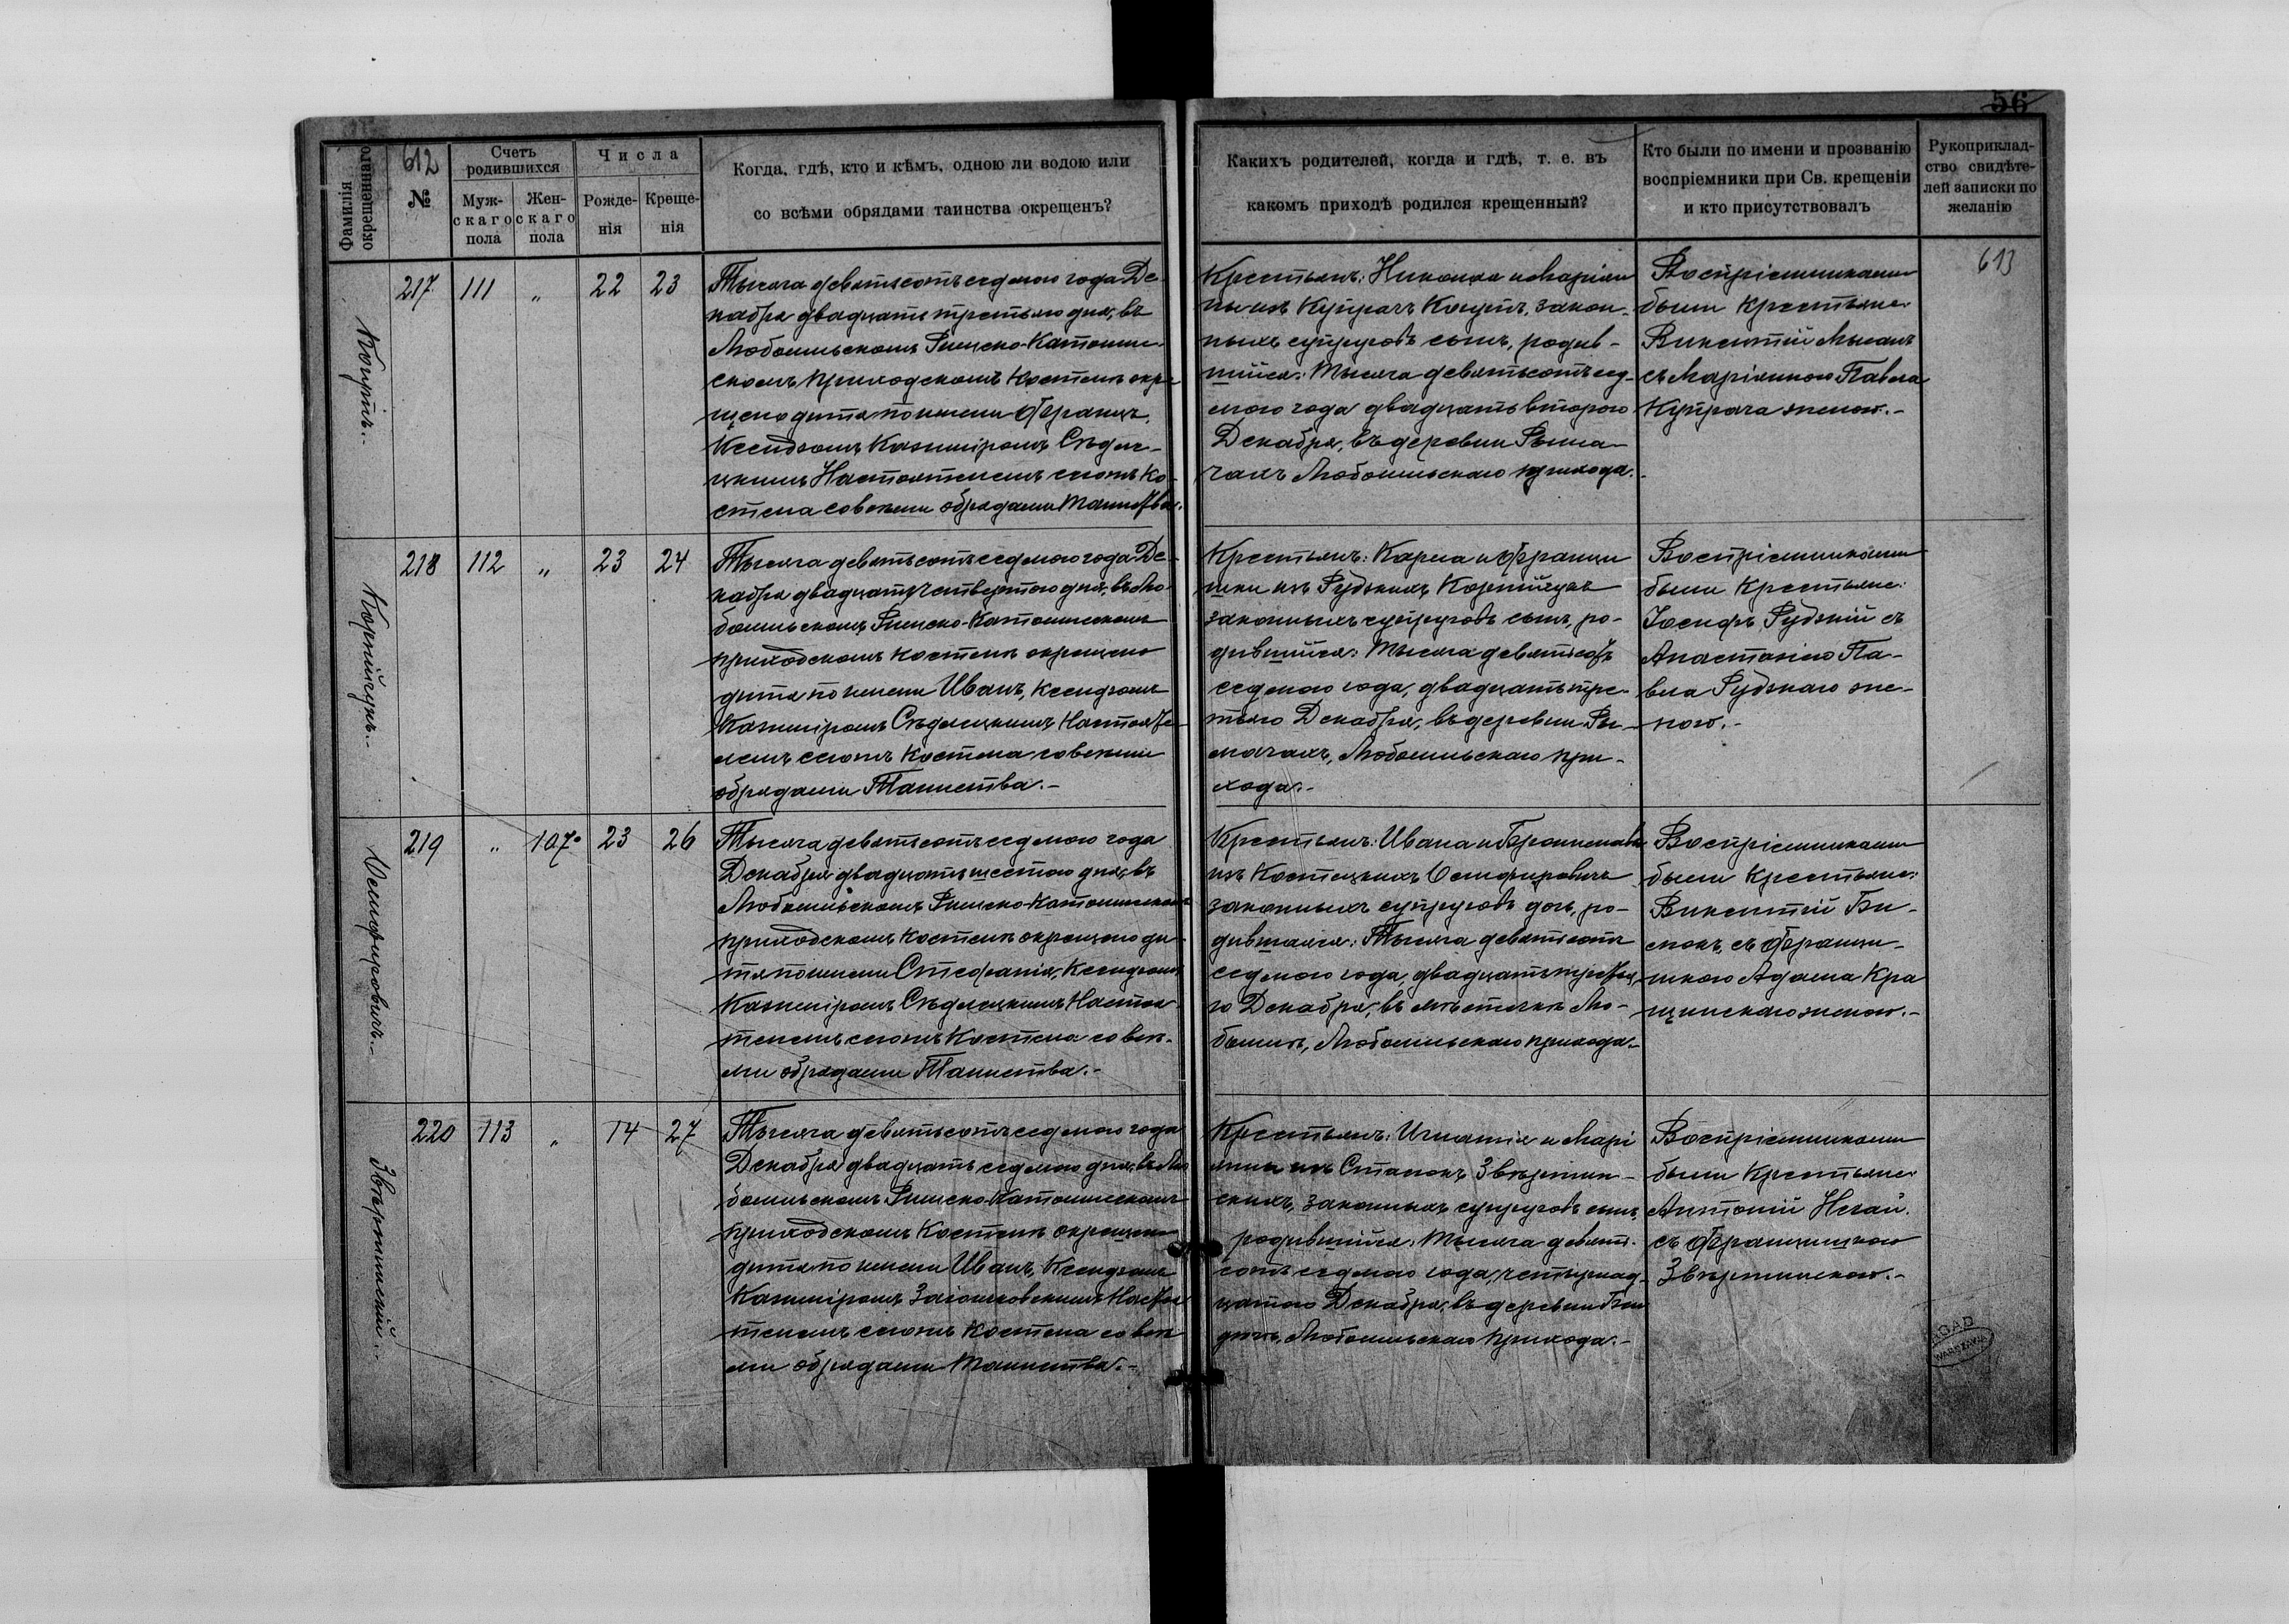 56
Фамилія окрещеннаго
612
№
Счетъ родившихся
Муж-скаго пола
Жен-скаго пола
Числа
Рожде-нія
Креще-нія
Когда, гдѣ, кто и кѣмъ, одною ли водою или
со всѣми обрядами таинства окрещенъ?
Какихъ родителей, когда и гдѣ, т. е. въ
какомъ приходѣ родился крещенный?
Кто были по имени и прозванію
воспріемники при Св. крещеніи
и кто присутствовалъ
Рукоприклад-
ство свидѣте-
лей записки по
желанію
613
Коцутъ.-
217
111
„
22
23
Тысяча девятьсотъ седмого года Де-
кабря двадцать третьяго дня, въ
Любомльскомъ Римско-Католиче-
скомъ приходскомъ Костелѣ окре-
щено дитя по имени Францъ,
Ксендзомъ Казиміромъ Сѣдле-
цкимъ Настоятелемъ сего-жъ Ко-
стела со всѣми обрядами Таинства.
Крестьянъ: Николая и Маріан-
ны изъ Купрачъ Коцутъ, закон-
ныхъ супруговъ сынъ, родив-
шійся: Тысяча девятьсотъ сед-
мого года двадцать второго
Декабря, въ деревни Рыма-
чахъ Любомльскаго прихода.-
Воспріемниками
были Крестьяне:
Викентій
съ Маріанною Павла
Купрача женою.-
Корнійчукъ.-
218
112
„
23
24
Тысяча девятьсотъ седмого года Де-
кабря двадцать четвертого дня, въ Лю-
бомльскомъ Римско-Католическомъ
приходскомъ Костелѣ окрещено
дитя по имени Иванъ, Ксендзомъ
Казиміромъ Сѣдлецкимъ Настояте-
лемъ сего-жъ Костела со всѣми
обрядами Таинства.-
Крестьянъ: Карла и Францы-
шки изъ Рудзкихъ Корнійчукъ
законныхъ супруговъ сынъ, ро-
дившійся: Тысяча девятьсотъ
седмого года, двадцать тре-
тьяго Декабря, въ деревни Ры-
мачахъ, Любомльскаго при-
хода.-
Воспріемниками
были Крестьяне:
Іосифъ Рудзкій съ
Анастазіею Па-
вла Рудзкаго же-
ною.-
Осипфировичъ.-
219
„
107
23
26
Тысяча девятьсотъ седмого года
Декабря двадцать шестого дня, въ
Любомльскомъ Римско-Католическомъ
приходскомъ Костелѣ окрещено ди-
тя по имени Стефанія, Ксендзомъ
Казиміромъ Сѣдлецкимъ Настоя-
телемъ сего-жъ Костела со всѣ-
ми обрядами Таинства.-
Крестьянъ: Ивана и Брониславы
изъ Костецкихъ Осипфировичъ
законныхъ супруговъ дочь, ро-
дившаяся: Тысяча девятьсотъ
седмого года, двадцать третья-
го Декабря, въ мѣстечкѣ Лю-
бомлѣ, Любомльскаго прихода.-
Воспріемниками
были Крестьяне:
Викентій
съ Францы-
шкою Адама Кра
щинскаго женою.-
Звѣржинскій.-
220
113
„
14
27
Тысяча девятьсотъ седмого года
Декабря двадцать седмого дня, въ Лю-
бомльскомъ Римско-Католическомъ
приходскомъ Костелѣ окрещено
дитя по имени Иванъ, Ксендзомъ
Казиміромъ Настоя-
телемъ сего-жъ Костела со всѣ-
ми обрядами Таинства.-
Крестьянъ: Игнатія и Марі-
анны изъ Звѣржин-
скихъ, законныхъ супруговъ сынъ,
родившійся: Тысяча девять-
сотъ седмого года, четырнад-
цатого Декабря, въ деревни
Любомльскаго прихода.-
Воспріемниками
были Крестьяне:
Антоній
съ Францишкою
Звѣржинскою.-
AGAD
WARSZAWA